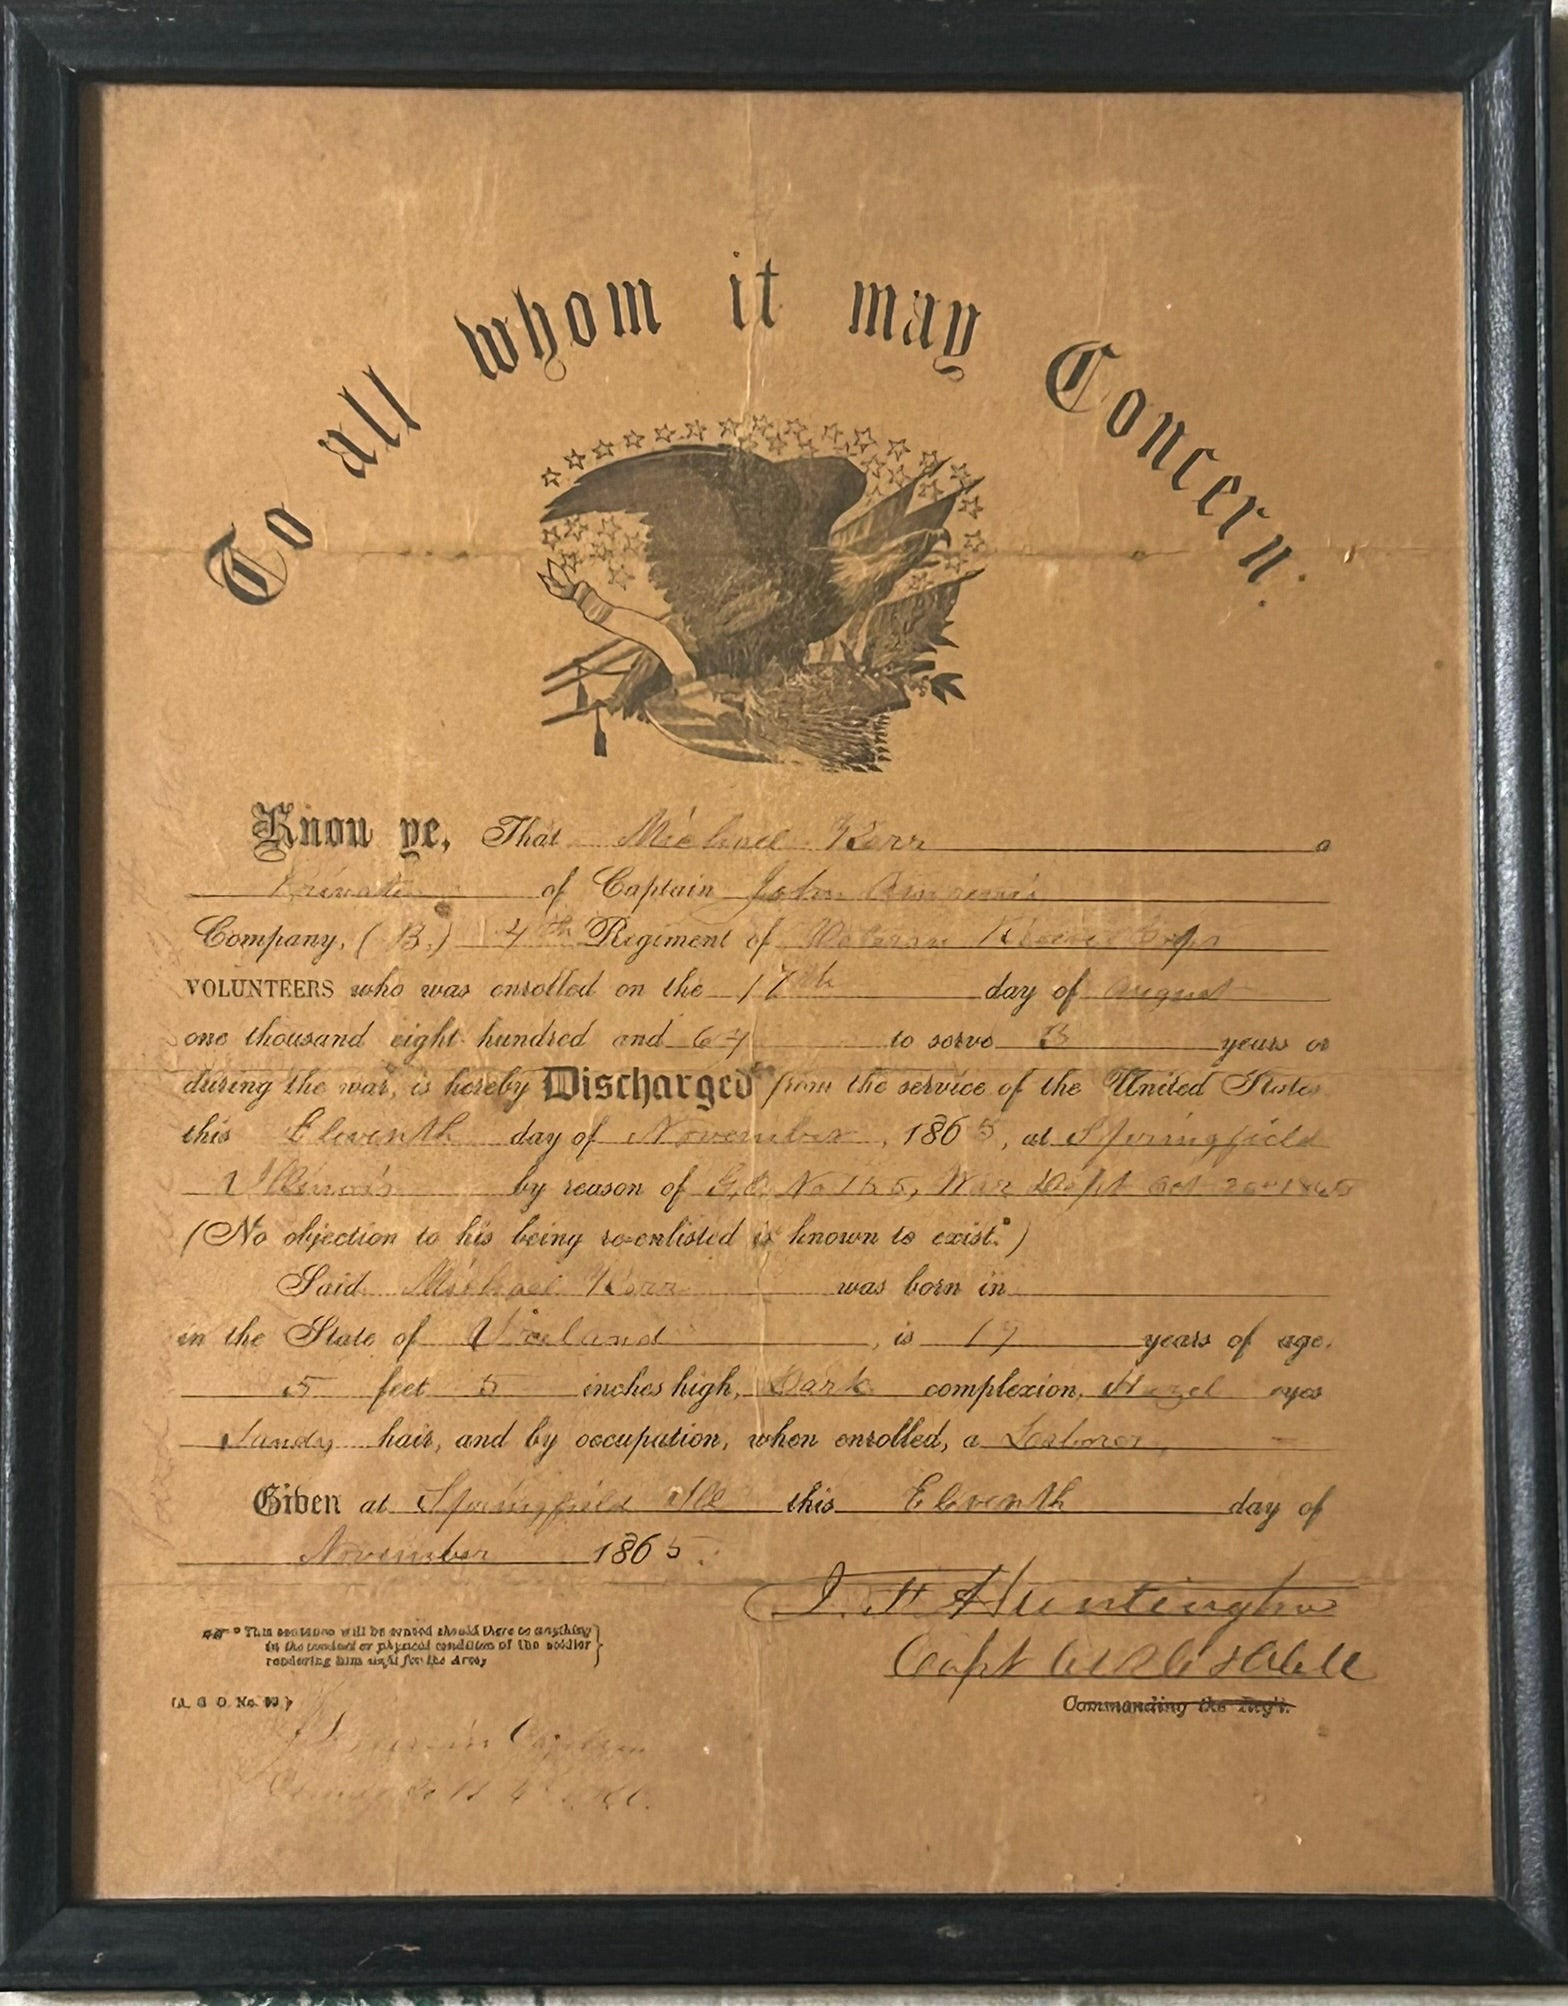 To all whom it may Concern.
Know ye, That Michael Kerr a
Private of Captain John
Company, (B.) 4th Regiment of Veteran Reserve Corps
VOLUNTEERS who was enrolled on the 17th day of August
one thousand eight hundred and 64 to serve 3 years or
during the war, is hereby Discharged from the service of the United States
this Eleventh day of November, 1865, at Springfield
Illinois by reason of G.O. No 155, War Dept Oct 26th 1865
(No objection to his being re-enlisted is known to exist.*)
Said Michael Kerr was born in
in the State of Ireland, is 19 years of age,
5 feet 5 inches high, Dark complexion, Hazel eyes
Sandy hair, and by occupation, when enrolled, a Laborer
Given at Springfield Ill this Eleventh day of
November 1865.
J. H. Huntington
Capt
Commanding the Reg't.
* This sentence will be erased should there be anything
in the conduct or physical condition of the soldier
rendering him unfit for the Army
(A. G. O. No. 99)